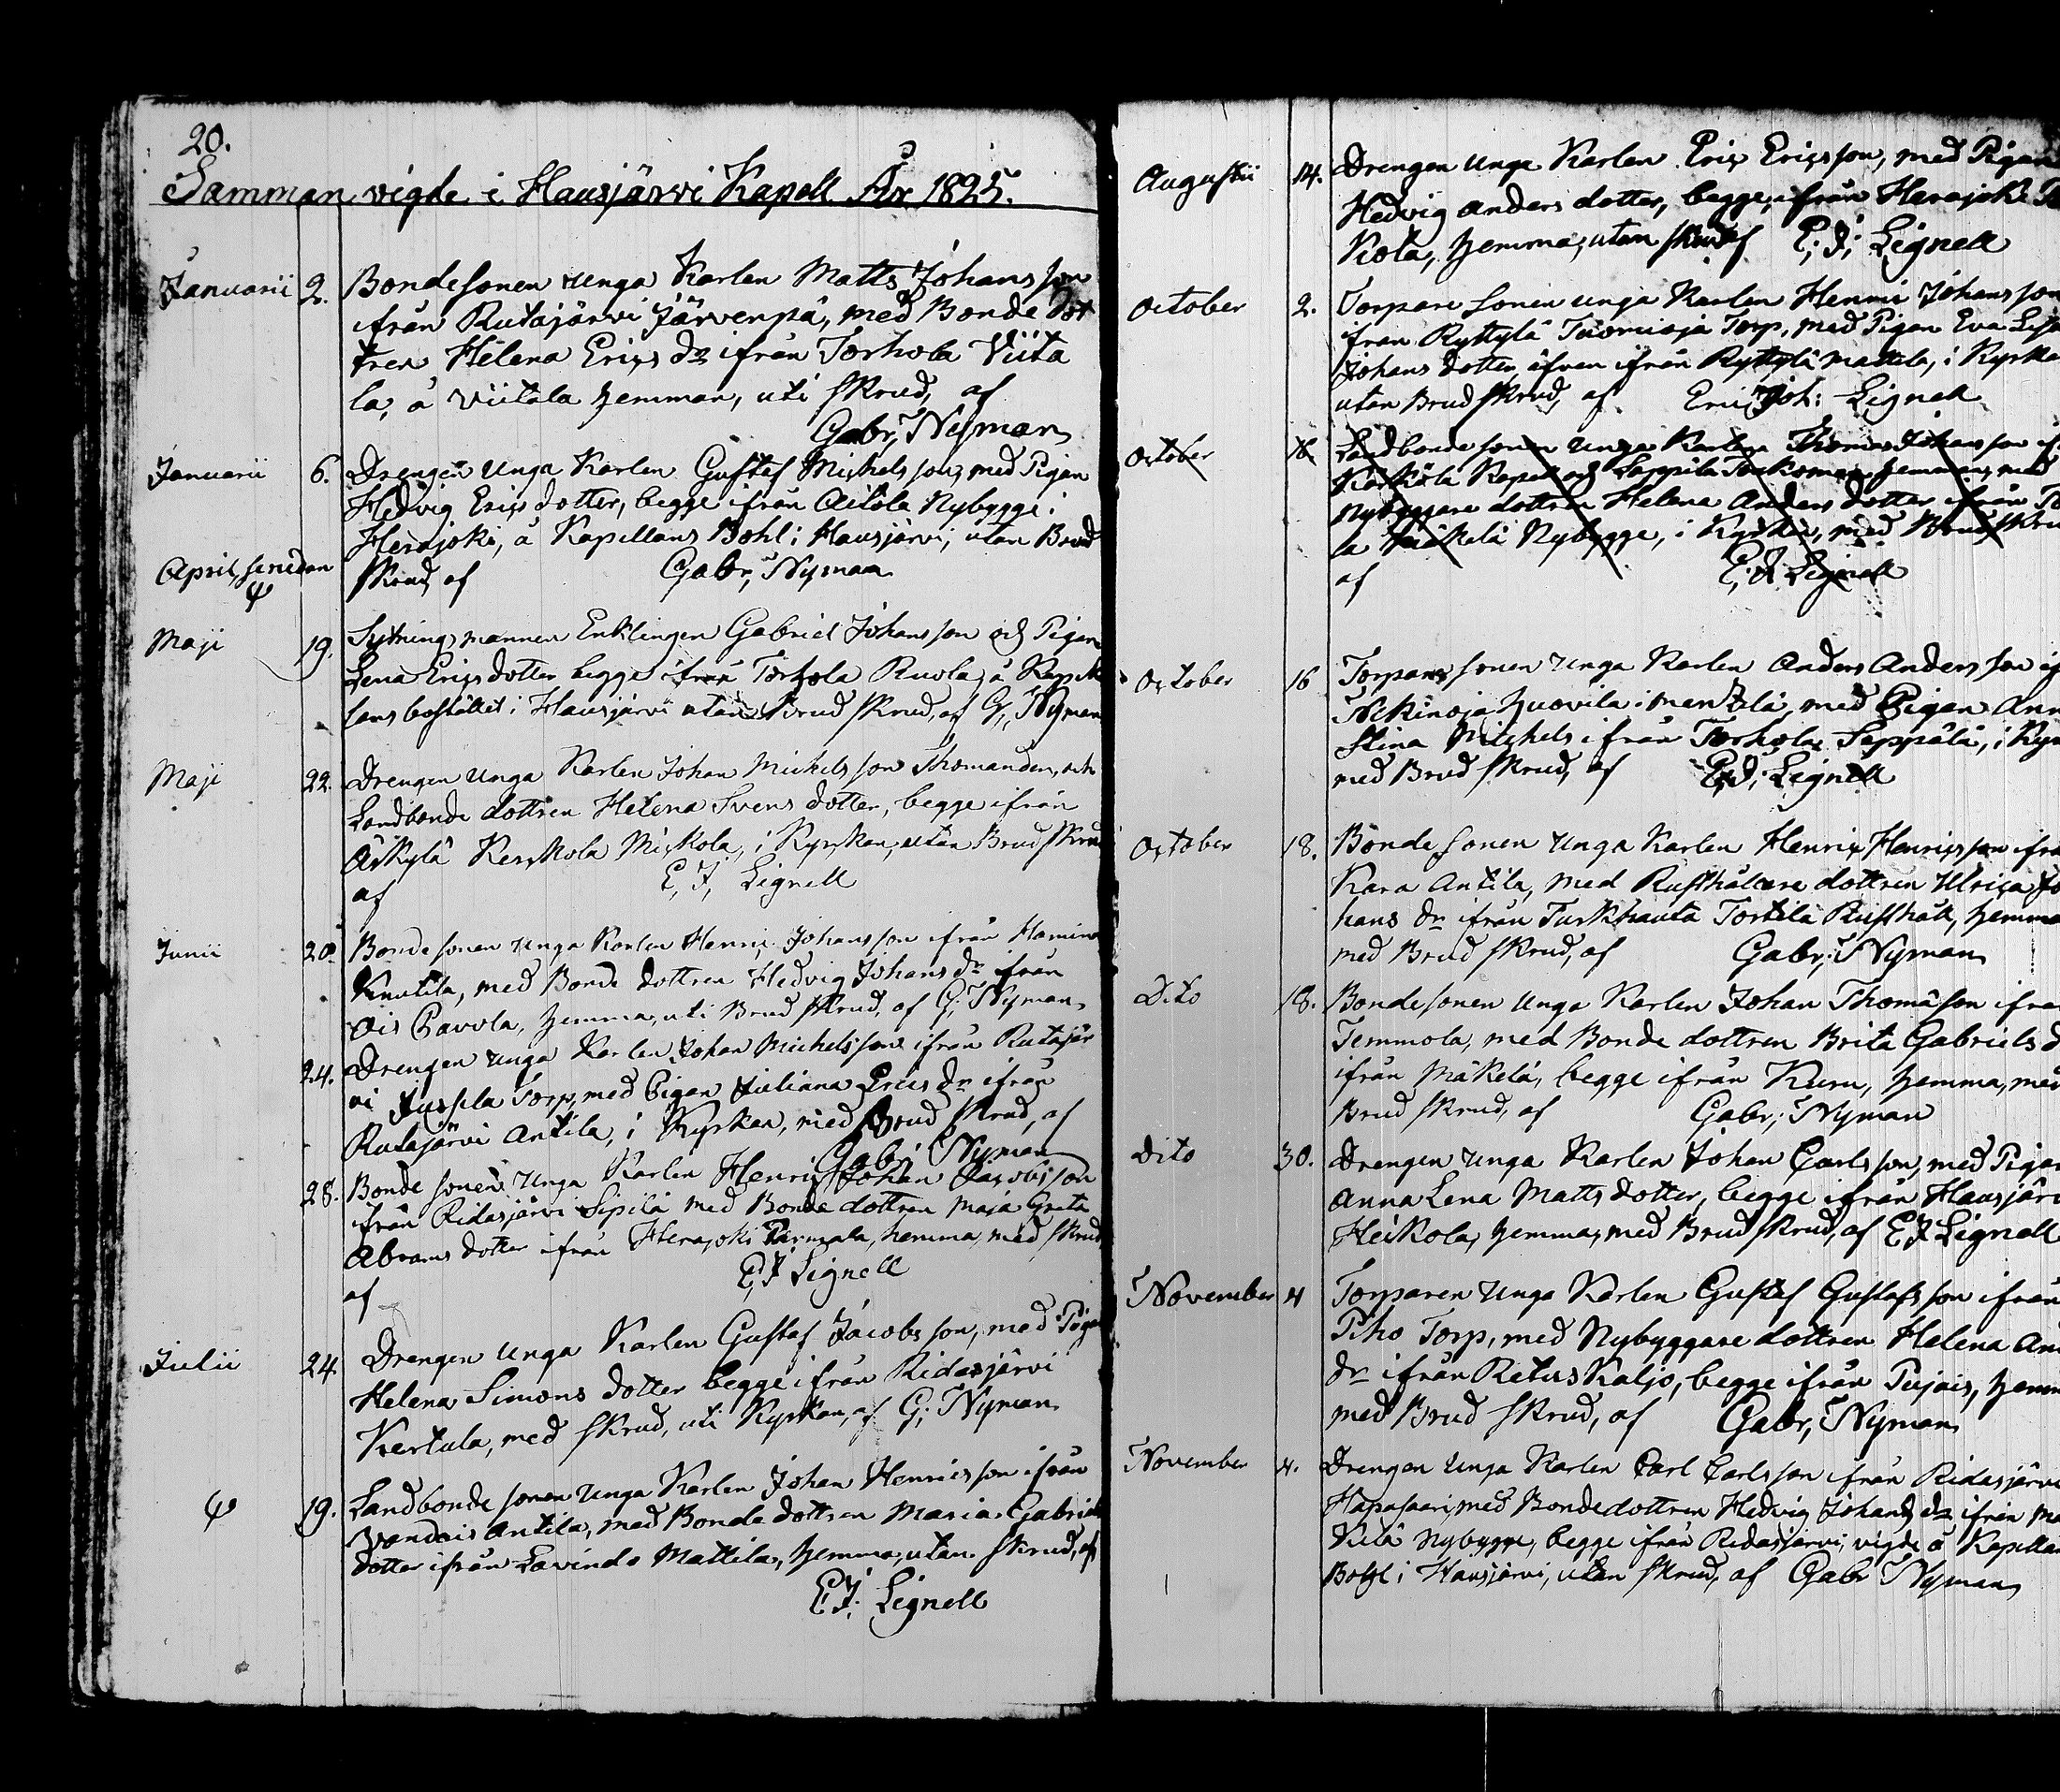 20.
Samman vigde i Hausjärvi Kapell År 1825.
Januarii 2. Bondesonen unga Karlen Matts Johansson
ifrån Rutajärvi Järvenpä, med Bonde dot
tren Helena Erics dr ifrån Torhola Viita
la, å Viitala hemman, uti skrud, af
Gabr, Nyman
Januarii 6. Drengen unga Karlen Gustaf Michelsson, med Pigan
Hedvig Ericsdotter, begge ifrån Aitola Nybygge i
Herajoki, å Kapellans Bohl i Hausjärvi, utan Brud
April, senedan skrud, af Gabr, Nyman
Maji 19. Sytningsmannen Enklingen Gabriel Johansson och Pigan
Lena Ericsdotter begge ifrån Torhola Ruola, å Kapel
lans bostället i Hausjärvi utan Brud skrud, af G, Nyman
Maji 22. Drengen unga Karlen Johan Michelsson Thomander, och
Landbonde dottren Helena Svens dotter, begge ifrån
Äikylä Kerskola Mickola, i Kyrkan, utan Brud skrud
af E, J, Lignell
Junii 20. Bondesonen unga Karlen Henric Johansson ifrån Hamina
Knutila, med Bonde dottren Hedvig Johans dr ifrån
Ois Pavola, hemma, uti Brud skrud, af G; Nyman
24. Drengen unga Karlen Johan Michelsson ifrån Rutajär
vi Jussila Torp, med Pigan Juliana Erics dr ifrån
Rutajärvi Antila, i Kyrkan, med Brud skrud, af
Gabr; Nyman
28. Bonde sonen unga Karlen Henric Johan Jacobsson
ifrån Ridasjärvi Sipilä med Bonde dottren Maja Greta
Abrams dotter ifrån Herajoki Parmala, hemma, med skrud
af E, J Lignell
Julii 24. Drengen unga Karlen Gustaf Jacobsson, med Pigan
Helena Simons dotter begge ifrån Ridasjärvi
Kertula, med skrud, uti Kyrkan, af G; Nyman
19. Landbonde sonen unga Karlen Johan Henricsson ifrån
Vandais Antila, med Bonde dottren Maria Gabriels
dotter ifrån Lavindo Mattila, hemma, utan skrud, af
E; J; Lignell
Augustii 14. Drengen unga Karlen Eric Ericsson, med Pigan
Hedvig Anders dotter, begge, ifrån Herajoki
Kota, hemma, utan skrud af E; J; Lignell
October 2. Torpare sonen unga Karlen Henric Johansson
ifrån Ryttylä Tuomioja Torp, med Pigan Eva Lisa
Johans dotter, äfven ifrån Ryttylä Mattila, i Kyrkan
utan Brud skrud, af Eric Joh: Lignell
October 16. Landbonde sonen unga Karlen Thomas Johansson
Kärkölä Kapell och Lappila hemman, med
Nybyggare dottren Helena Anders dotter ifrån
la Nybygge, i Kyrkan, med Brud skrud
af E; J Lignell
October 16 Torpare sonen unga Karlen Anders Andersson
Nikinoja Huovila i Mentzlä, med Pigan Ann
Stina Michels ifrån Torhola Seppälä, i Kyr
med Brud skrud, af E; J; Lignell
October 18. Bonde sonen unga Karlen Henric Henricsson ifrå
Kara Antila, med Rusthållare dottren Ulrica Jo
hans dr ifrån Turkhauta Tortila Rusthåll, hemma
med Brud skrud, af Gabr; Nyman
Dito 18. Bondesonen unga Karlen Johan Thomasson ifrån
Temmola, med Bonde dottren Brita Gabriels d
ifrån Mäkelä, begge ifrån Kuru, hemma, med
Brud skrud, af Gabr; Nyman
Dito 30. Drengen unga Karlen Johan Carlsson, med Pigan
Anna Lena Matts dotter, begge ifrån Hausjärvi
Heikola, hemma, med Brud skrud, af E J Lignell
November 4 Torparen unga Karlen Gustaf Gustafsson ifrån
Piho Torp, med Nybyggare dottren Helena And
dr ifrån Retus Kaljo, begge ifrån Pujais, hemm
med Brud skrud, af Gabr, Nyman
November 4. Drengen unga Karlen Carl Carlsson ifrån Ridasjärvi
Hapasaari, med Bonde dottren Hedvig Johans dr ifrån Ma
Nybygge, begge ifrån Ridasjärvi, vigde å Kapellan
Bohl i Hausjärvi, utan skrud, af Gabr Nyman